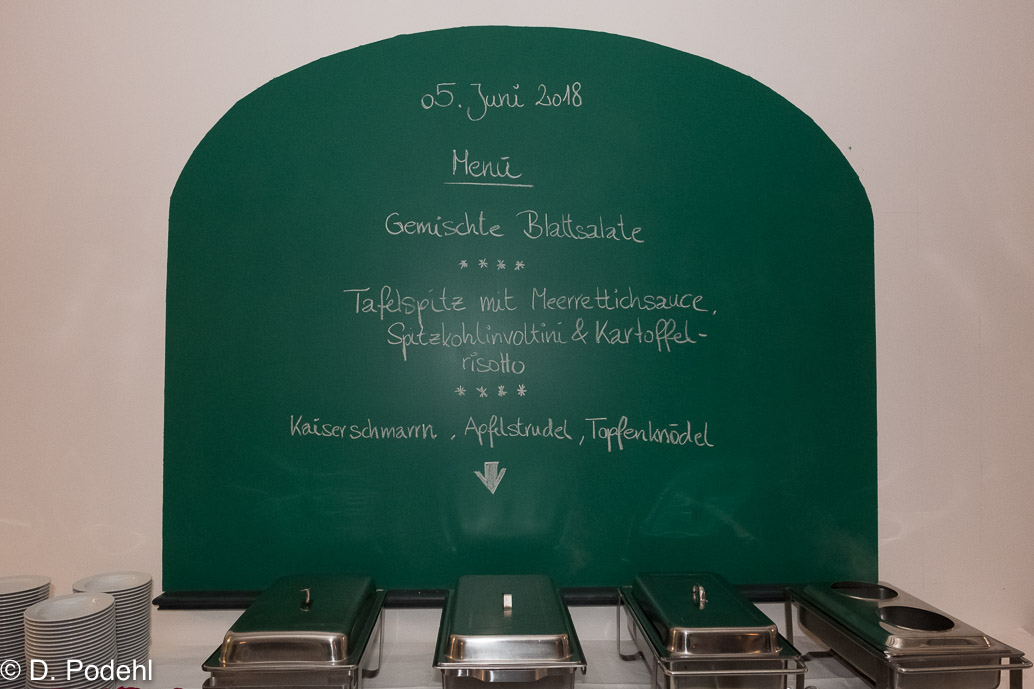 05. Juni 2018
Menü
Gemischte Blattsalate
****
Tafelspitz mit Meerrettichsauce,
Spitzkohlinvoltini & Kartoffel-
risotto
****
Kaiserschmarrn, Apfelstrudel, Topfenknödel
© D. Podehl